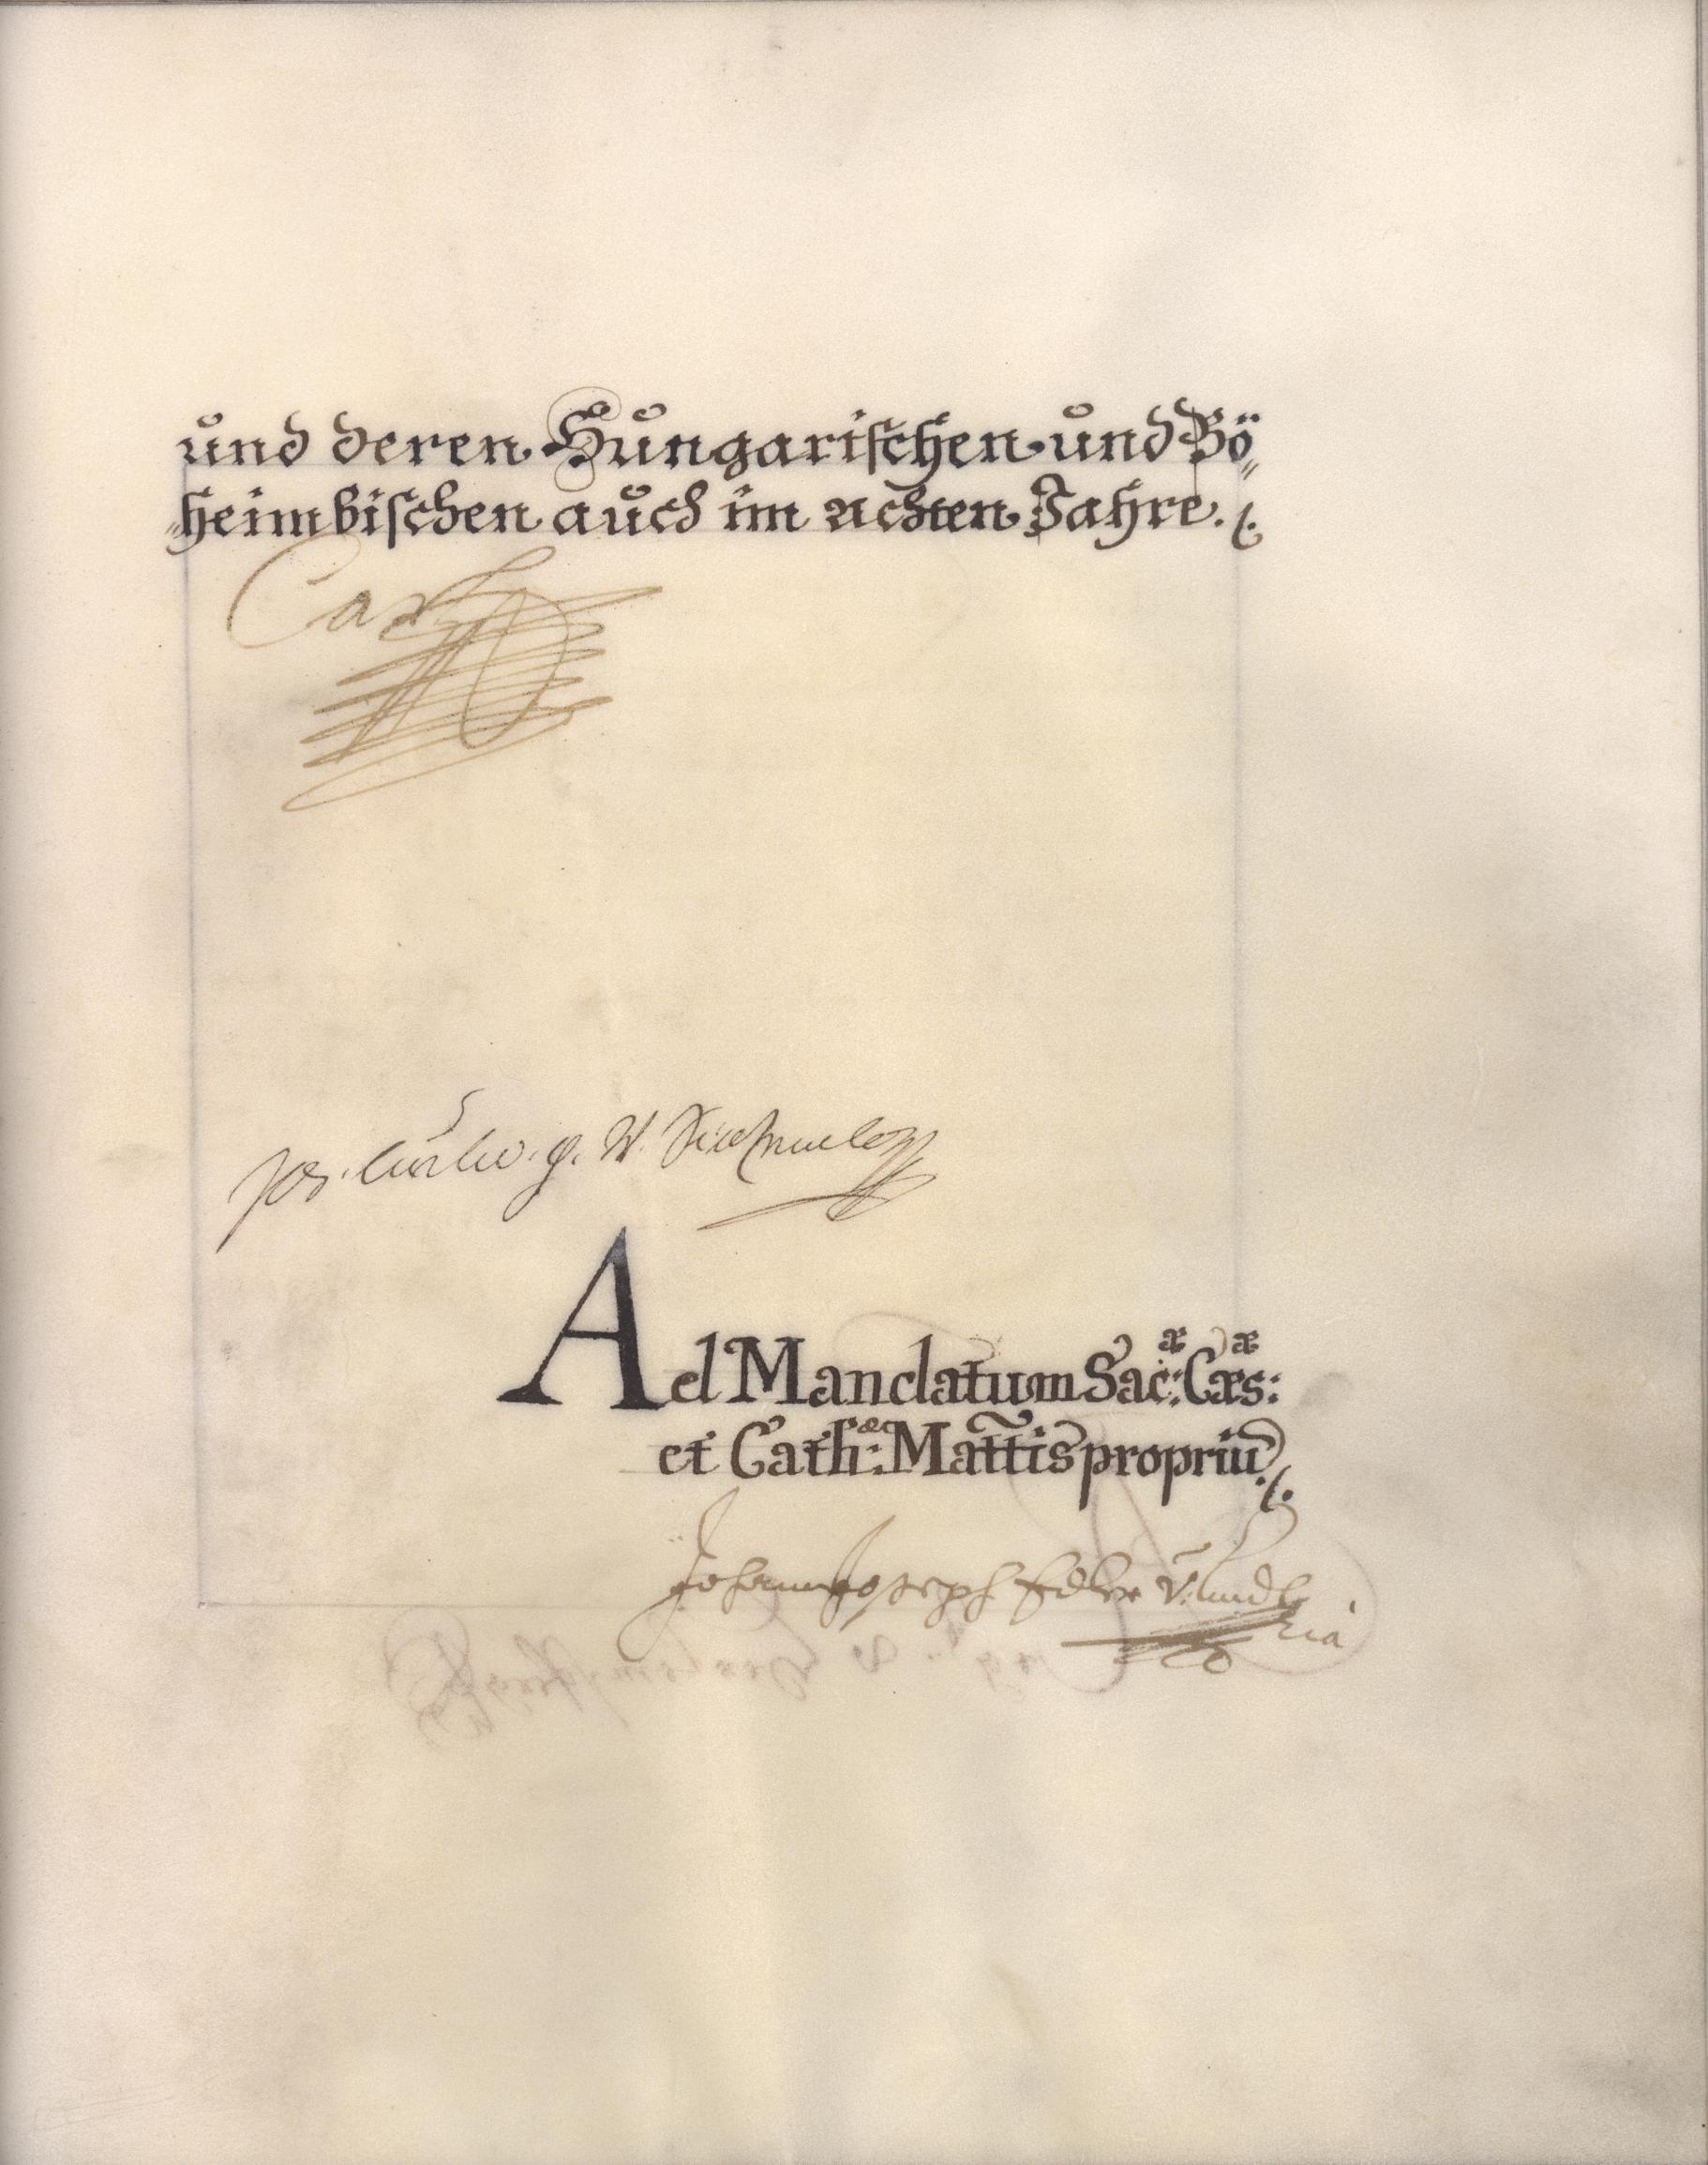 und deren Hungarischen und Bö⸗
⸗heimbischen auch im Achten Jahre.
Carl
Ad Mandatum Sac:æ Cæs:æ
et Cath:æ Mattis propriu.
Johann Joseph Edler v.